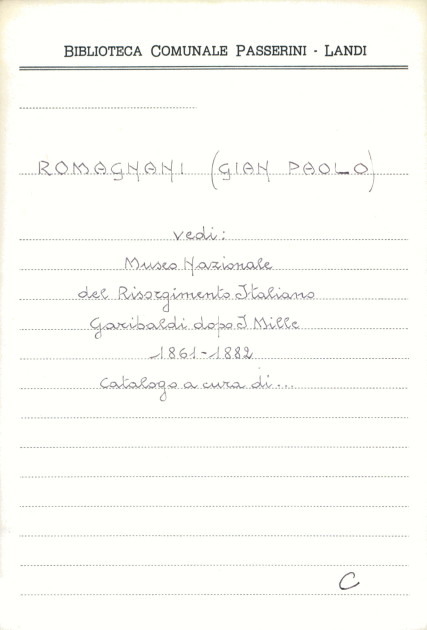 BIBLIOTECA COMUNALE PASSERINI - LANDI
ROMAGNANI (GIAN PAOLO)
vedi:
Museo Nazionale
del Risorgimento Italiano
Garibaldi dopo I Mille
1861-1882
Catalogo a cura di...
C